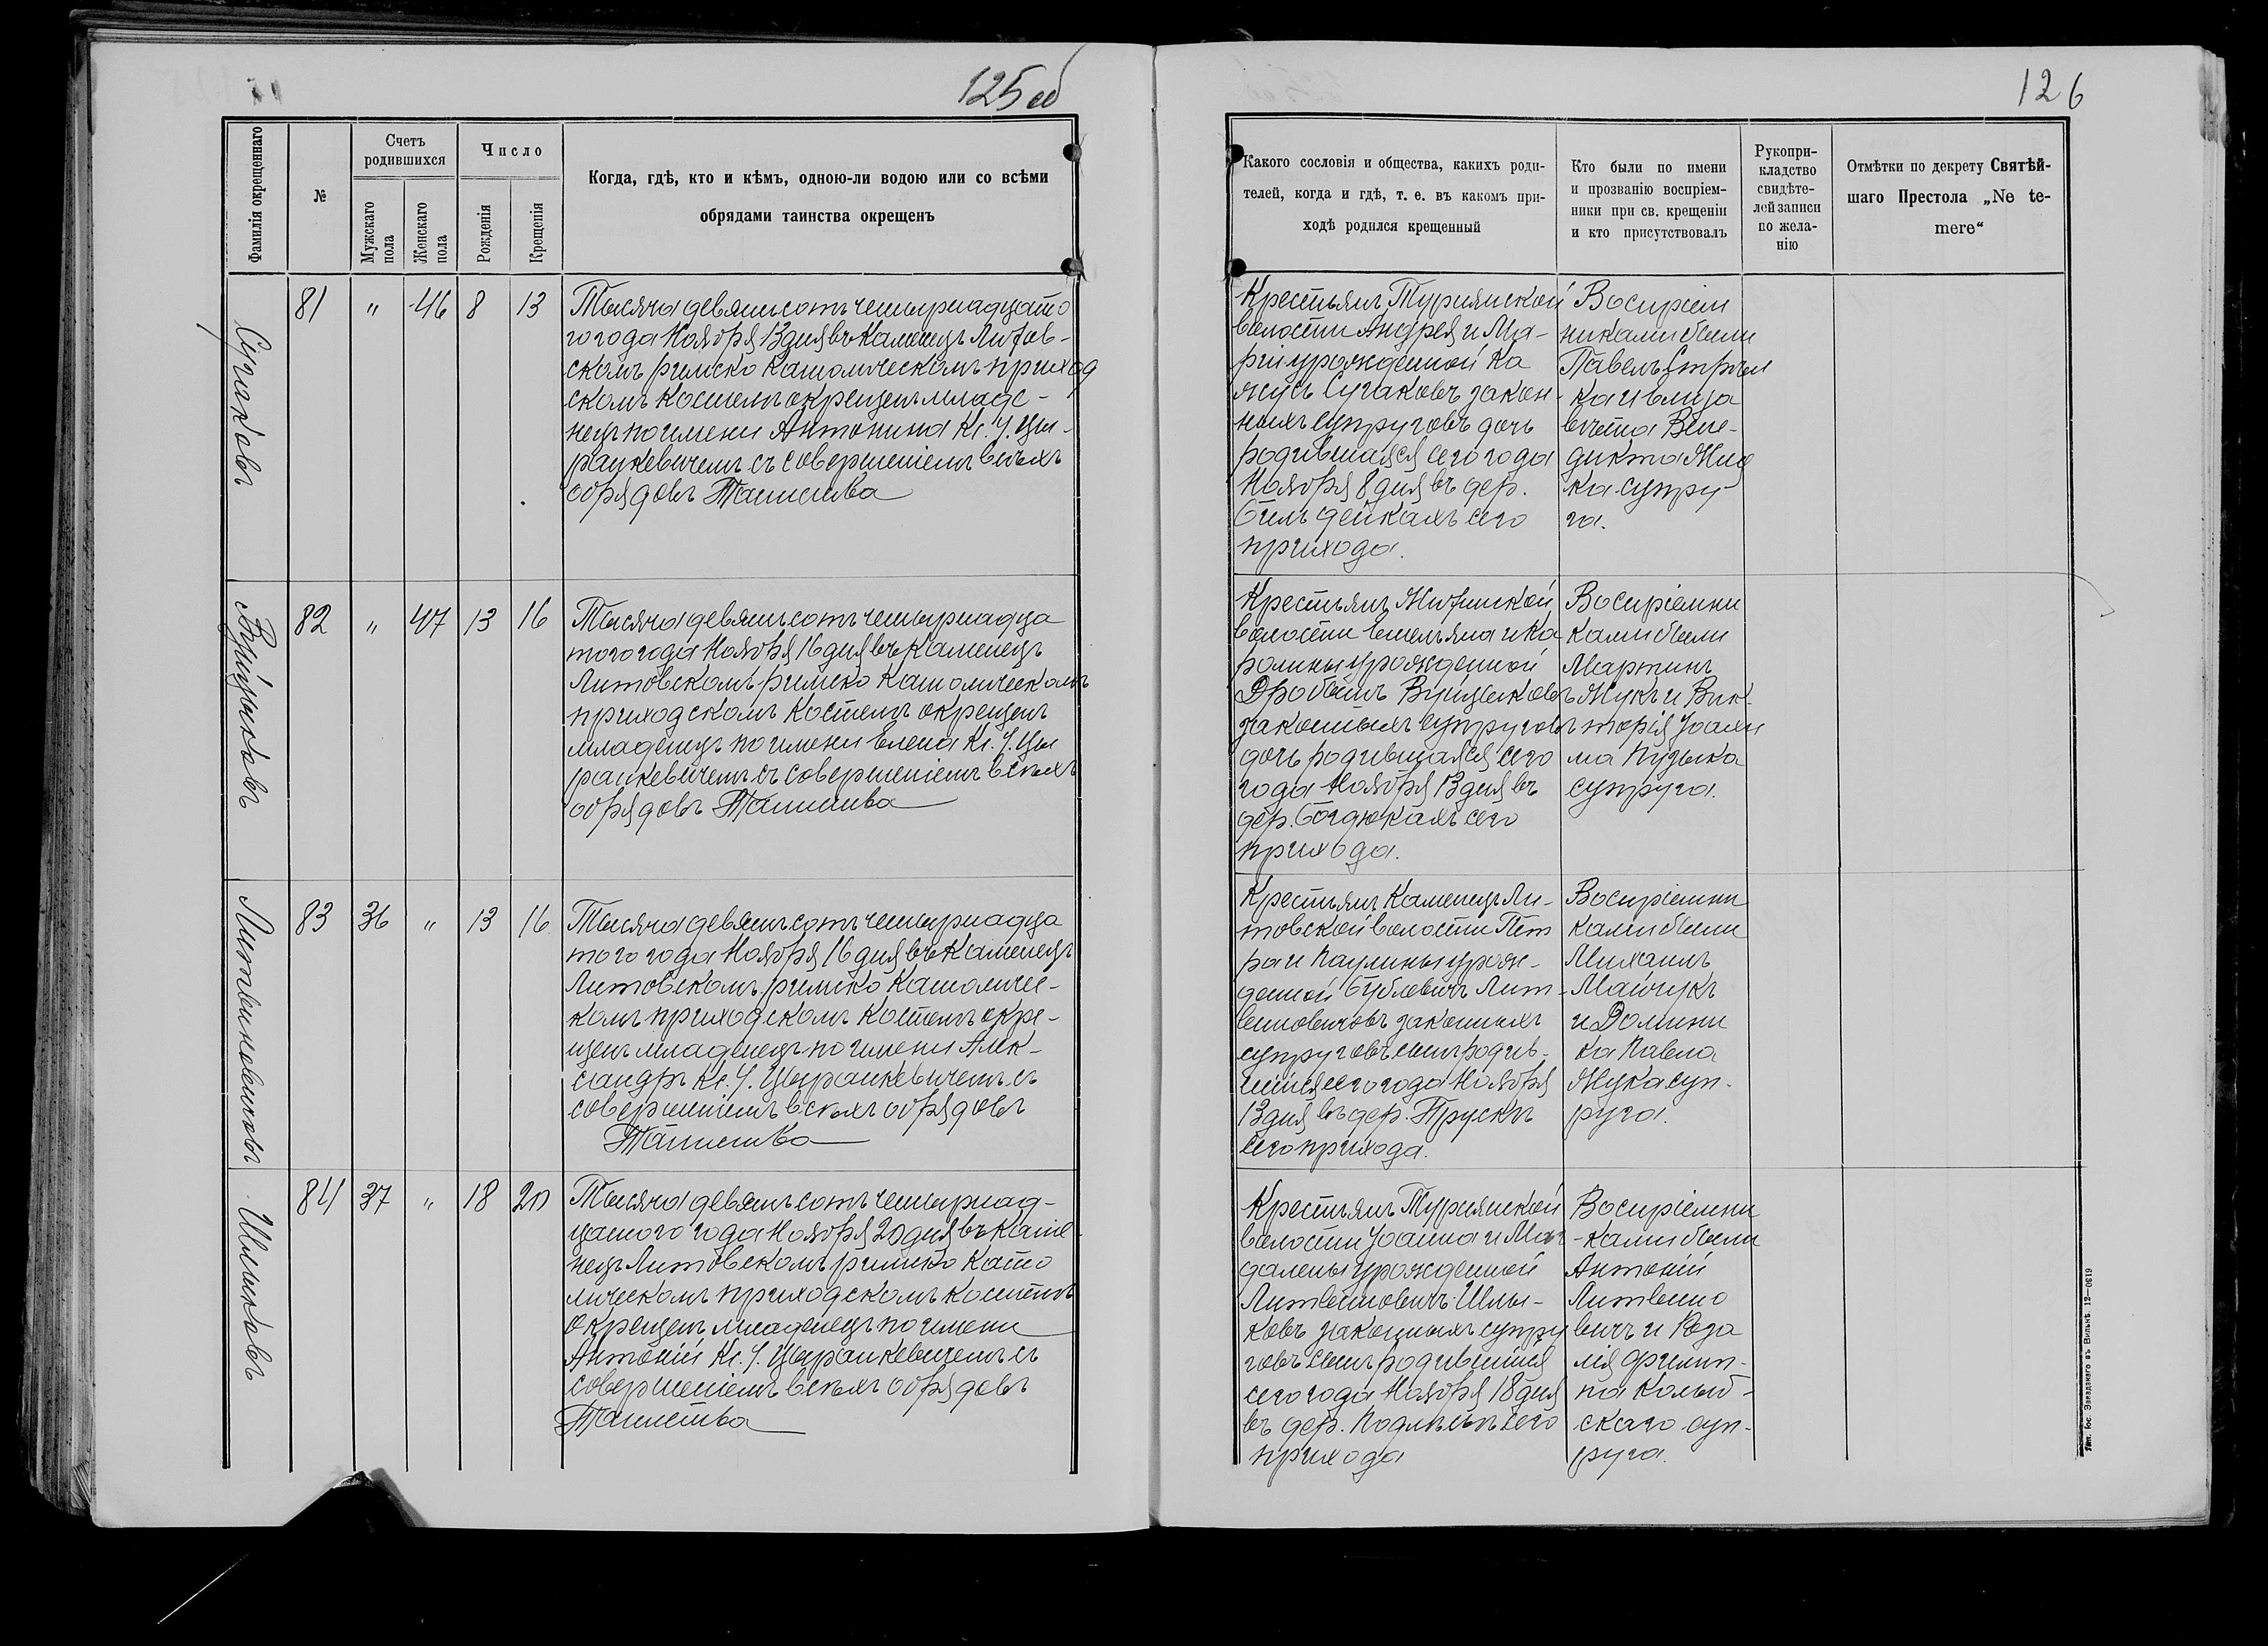 125 об
Фамилія окрещеннаго
№
Счетъ
родившихся
Мужскаго
пола
Женскаго
пола
Число
Рожденія
Крещенія
Когда, гдѣ, кто и кѣмъ, одною-ли водою или со всѣми
обрядами таинства окрещенъ
81 " 46 8 13
Тысяча девятьсотъ четырнадцато
го года Ноября 13 дня въ Каменецъ Литов-
скомъ римско католическомъ приход
скомъ костелѣ окрещенъ младе-
нецъ по имени Антонина Кс. І. Цы-
раукевичемъ съ совершеніемъ всѣхъ
обрядовъ Таинства
82 " 47 13 16
Тысяча девятьсотъ четырнадца
того года Ноября 16 дня въ Каменецъ
Литовскомъ римско католическомъ
приходскомъ костелѣ окрещенъ
младенецъ по имени Елена Кс. І. Цы
раукевичемъ съ совершеніемъ всѣхъ
обрядовъ Таинства
Литвиновичовъ
83 36 " 13 16
Тысяча девятьсотъ четырнадца
того года Ноября 16 дня въ Каменецъ
Литовскомъ римско католичес-
комъ приходскомъ костелѣ окре-
щенъ младенецъ по имени Алек-
сандръ Кс. І. Цыраукевичемъ съ
совершеніемъ всѣхъ обрядовъ
Таинства
84 37 " 18 20
Тысяча девятьсотъ четырнад-
цатого года Ноября 20 дня въ Каме
нецъ Литовскомъ римско като
лическомъ приходскомъ костелѣ
окрещенъ младенецъ по имени
Антоній Кс. І. Цыраукевичемъ съ
совершеніемъ всѣхъ обрядовъ
Таинства
126
Какого сословія и общества, какихъ роди-
телей, когда и гдѣ, т. е. въ какомъ при-
ходѣ родился крещенный
Кто были по имени
и прозванію воспріем-
ники при св. крещеніи
и кто присутствовалъ
Рукопри-
кладство
свидѣте-
лей записи
по жела-
нію
Отмѣтки по декрету Святѣй-
шаго Престола „Ne te-
mere“
Крестьянъ Турнянской
волости Андрея и Ма-
ріи урожденной Ка
Сугаковъ закон-
ныхъ супруговъ дочь
родившаяся сего года
Ноября 8 дня въ дер.
сего
прихода.
Воспріем
никами были
Павелъ
ка и Елиза
вѣта Вене-
дикта Жу
ка супру-
га.
Крестьянъ
волости Емельяна и Ка
ролины урожденной
законныхъ супруговъ
дочь родившаяся сего
года Ноября 13 дня въ
дер. Богдюкахъ сего
прихода.
Воспріемни
ками были
Мартинъ
Жукъ и Вик-
торія Іоахи
ма Пузыка
супруга.
Крестьянъ Каменецъ Ли-
товской волости Пет
ра и Паулины урож-
денной Бублевичъ Лит-
виновичовъ законныхъ
супруговъ сынъ родив-
шійся сего года Ноября
13 дня въ дер.
сего прихода.
Воспріемни
ками были
Михаилъ
и Домини
ка Павла
Жука суп-
руга.
Крестьянъ Турнянской
волости Іоанна и Маг
далены урожденной
Литвиновичъ
ковъ законныхъ супру
говъ сынъ родившійся
сего года Ноября 18 дня
въ дер. сего
прихода
Воспріемни
-ками были
Антоній
Литвино
вичъ и Роза
лія Филип-
па
скаго суп-
руга.
Тип. Іос. Завадзкаго въ Вильнѣ. 12—0619